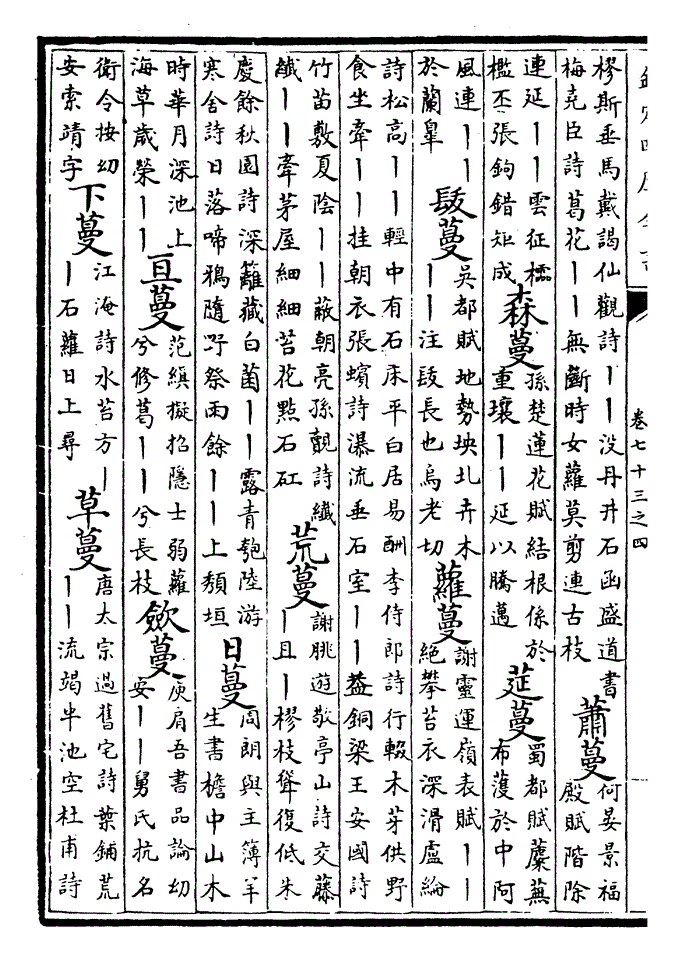 欽定四庫全書
卷七十三之四
樛斯垂馬戴謁仙觀詩丨丨沒丹井石函盛道書
梅堯臣詩葛花丨丨無斷時女蘿莫剪連古枝
蕭蔓
何晏景福
殿賦階除
連延丨丨雲征檽
檻丕張鉤錯矩成
森蔓
孫楚蓮花賦結根係於
重壤丨丨延以騰邁
莚蔓
蜀都賦蘪蕪
布濩於中阿
風連丨丨
於蘭臯
镺蔓
吳都賦地勢坱圠卉木
丨丨注镺長也烏老切
蘿蔓
謝靈運嶺表賦丨丨
絕攀苔衣深滑盧綸
詩松高丨丨輕中有石床平白居易酬李侍郎詩行輟木芽供野
食坐牽丨丨挂朝衣張蠙詩瀑流垂石室丨丨葢銅梁王安國詩
竹苗敷夏陰丨丨蔽朝亮孫覿詩纖
纖丨丨牽茅屋細細苔花點石矼
荒蔓
謝朓遊敬亭山詩交藤
丨且丨樛枝聳復低朱
慶餘秋園詩深籬藏白菌丨丨露青匏陸游
寒舍詩日落啼鴉隨野祭雨餘丨丨上頹垣
日蔓
周朗與主簿羊
生書檐中山木
時華月深池上
海草歲榮丨丨
亘蔓
范縝擬招隱士弱蘿
兮修葛丨丨兮長枝
歛蔓
庾肩吾書品論幼
安丨丨舅氏抗名
衛令按幼
安索靖字
下蔓
江淹詩水苔方丨
丨石蘿日上尋
草蔓
唐太宗過舊宅詩葉鋪荒
丨丨流竭半池空杜甫詩